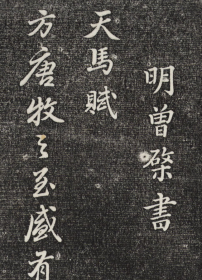 明曾棨書
天馬賦
方唐牧之至盛有